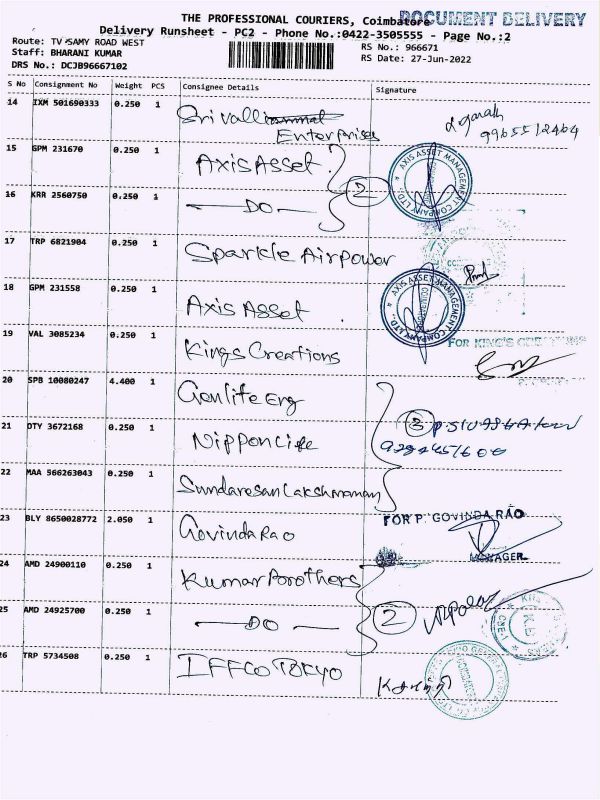 THE PROFESSIONAL COURIERS, Coimbatore
DOCUMENT DELIVERY
Delivery Runsheet - PC2 - Phone No.:0422-3505555 - Page No.:2
Route: TV SAMY ROAD WEST
RS No.: 966671
Staff: BHARANI KUMAR
RS Date: 27-Jun-2022
DRS No.: DCJB96667102
S No Consignment No Weight PCS Consignee Details Signature
14 IXM 501690333 0.250 1 Srivalli Enterprises 9965512464
15 GPM 231670 0.250 1 Axis Asset. 2 AXIS ASSET MANAGEMENT COMPANY LTD.
16 KRR 2560750 0.250 1 — DO —
17 TRP 6821904 0.250 1 Sparkle Airpower
18 GPM 231558 0.250 1 Axis Asset . AXIS ASSET MANAGEMENT COMPANY LTD.
19 VAL 3085234 0.250 1 Kings Creations FOR KING'S
20 SPB 10080247 4.400 1 Genlife Erg
21 DTY 3672168 0.250 1 Nippon Life 3
22 MAA 566263043 0.250 1 Sundaresan Lakshmanan
23 BLY 8650028772 2.050 1 Govinda Rao FOR P. GOVINDA RAO
MANAGER
24 AMD 24900110 0.250 1 Kumar Borothers
25 AMD 24925700 0.250 1 — DO — 2
26 TRP 5734508 0.250 1 IFFCO TOKYO